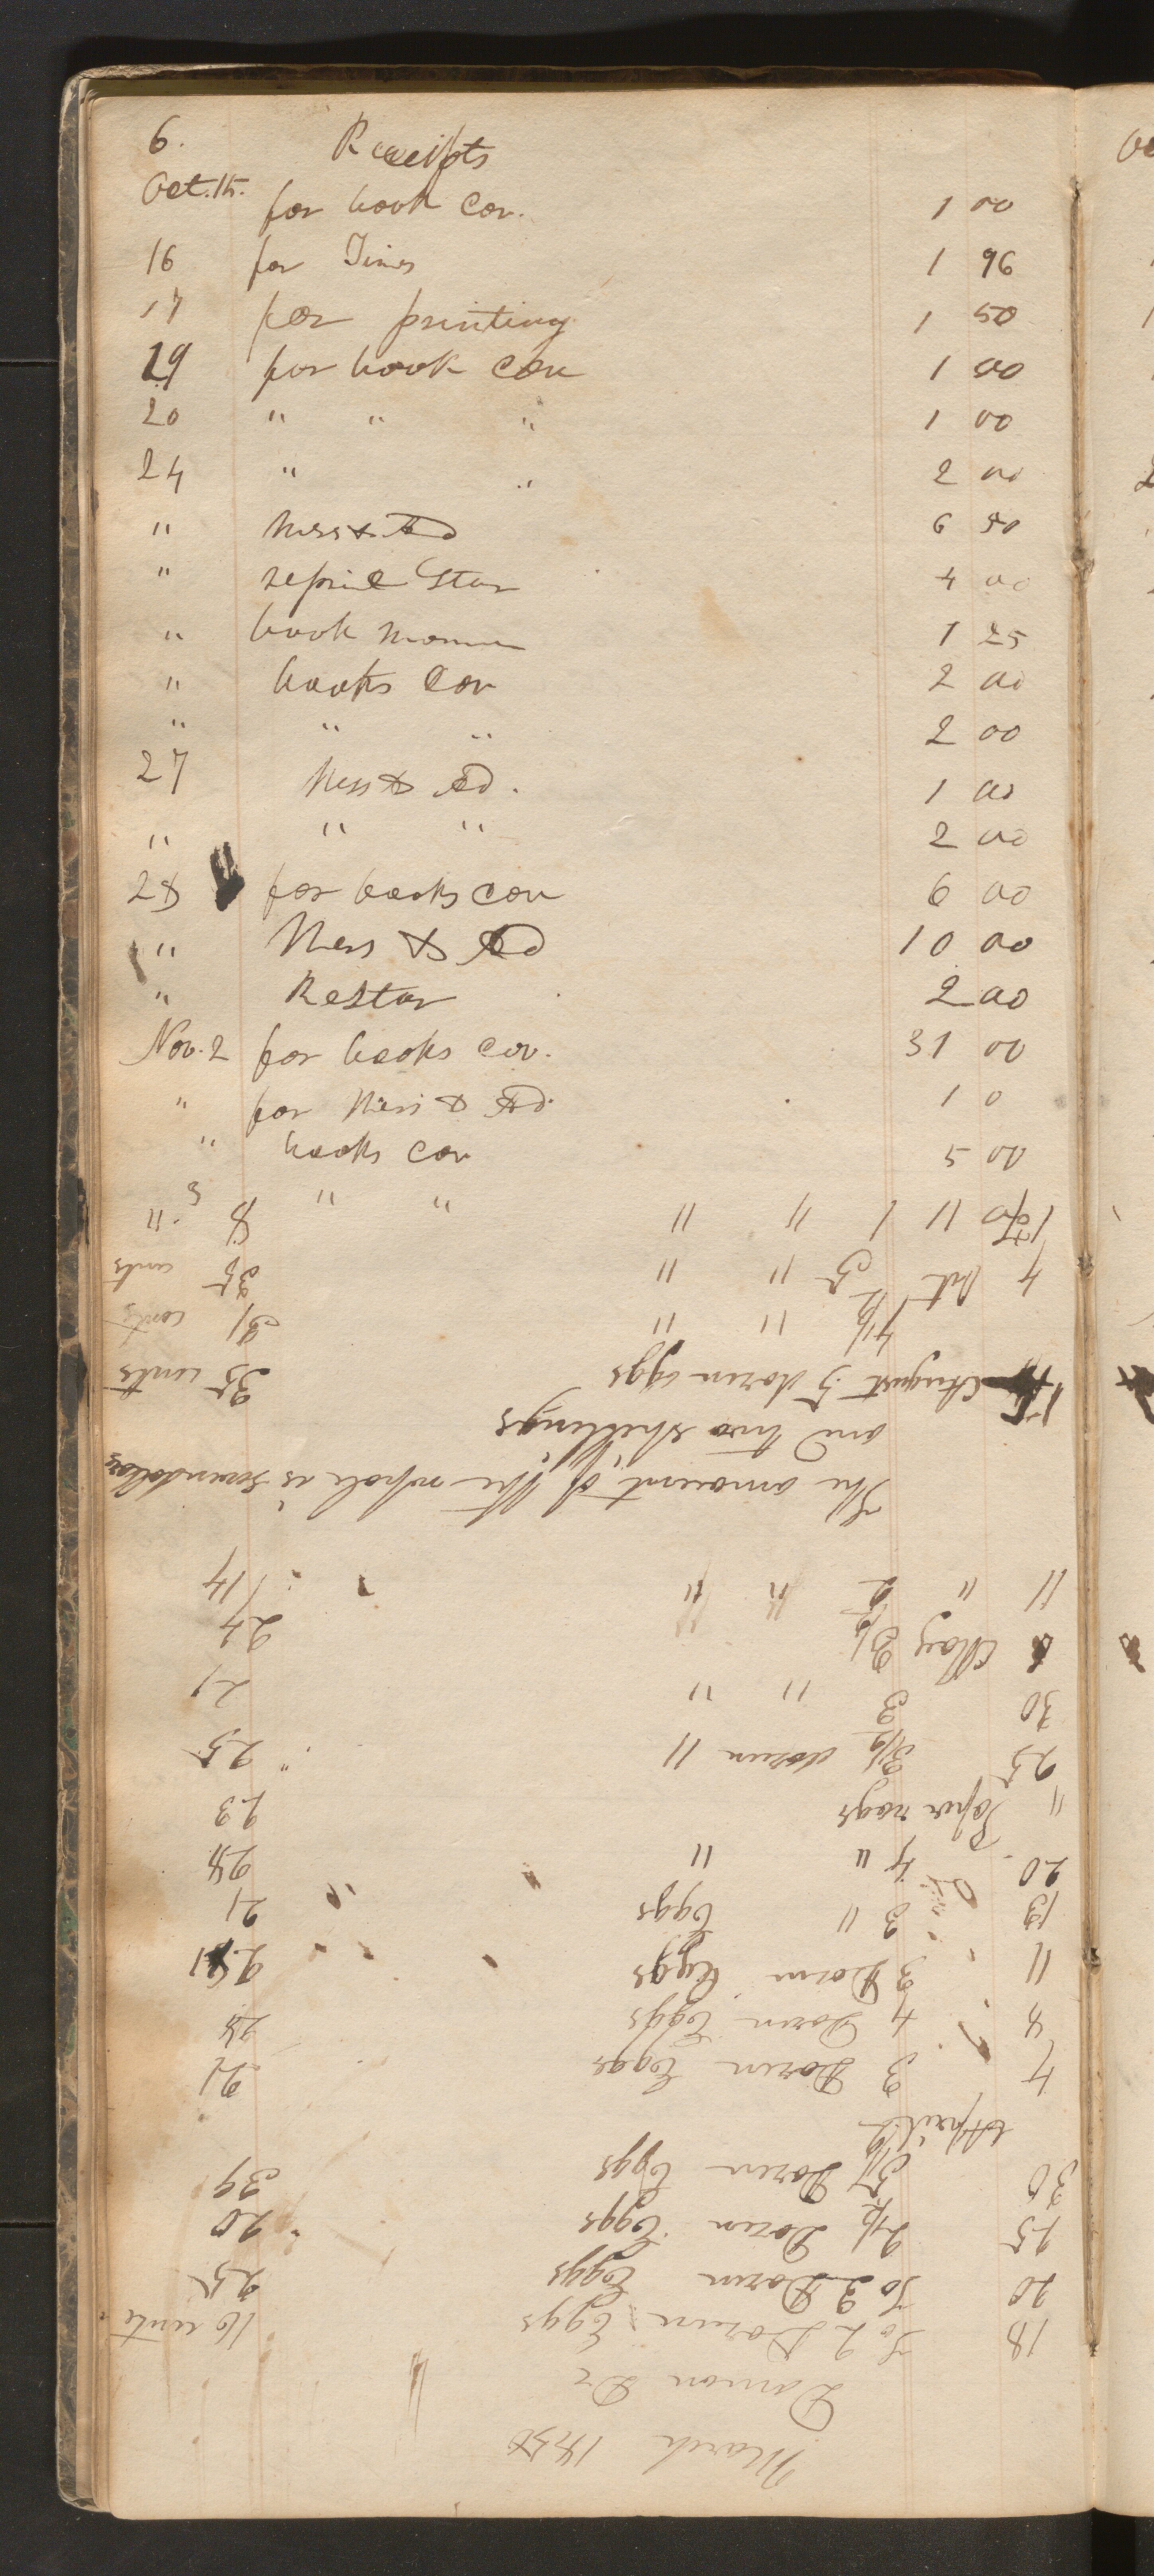 6. Receipts
Oct. 15. for book Cov. 1 00
16 for Times 1 96
17 for printing 1 50
19 for book Cov 1 00
20 " " " 1 00
24 " " 2 00
" Mess & Ad 6 50
" Star 4 00
" book Mormon 1 25
" books Cov 2 00
" " " 2 00
27 Mess & Ad. 1 00
" " " 2 00
28 for books cov 6 00
" Mess & Ad 10 00
" Restar 2 00
Nov. 2 for books cov. 31 00
" for Mess & Ad. 1 0
" books cov 5 00
3 " "
March 1838
Damon Dr
18 To 2 Dozen Eggs 16 cents
20 To 3 Dozen Eggs 25
25 2 1/2 Dozen Eggs 20
30 5 1/2 Dozen Eggs 39
April
4 3 Dozen Eggs 21
8 4 Dozen Eggs 28
11 3 Dozen Eggs 21
13 3 " Eggs 21
20 4 " " 28
" Paper rags 23
25 3 1/2 dozen " 25
30 3 " " 21
May 3 1/2 " " 24
11 " 2 " " 14
The amount of the whole is seven dollars
and two shillings
15 August 5 dozen eggs 35 cents
4 1/2 " " 31 cents
4 5 " " 35 cents
" 1 " " 8 "